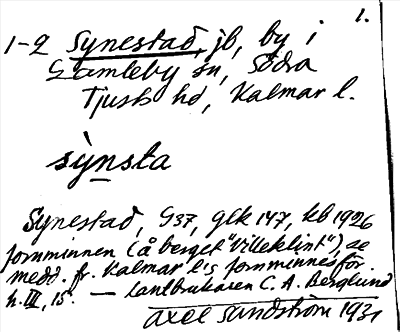 1.
1-2 Synestad, jb, by i
Gamleby sn, Södra
Tjusts hd, Kalmar l.
sỳnsta
Synestad, G37, glk 147, kb 1926
fornminnen (å berget "Villeklint"), se
medd. fr. Kalmar l:s fornminnesför
h. III, 15. — Lantbrukaren C. A. Berglund
Axel Sandström 1931